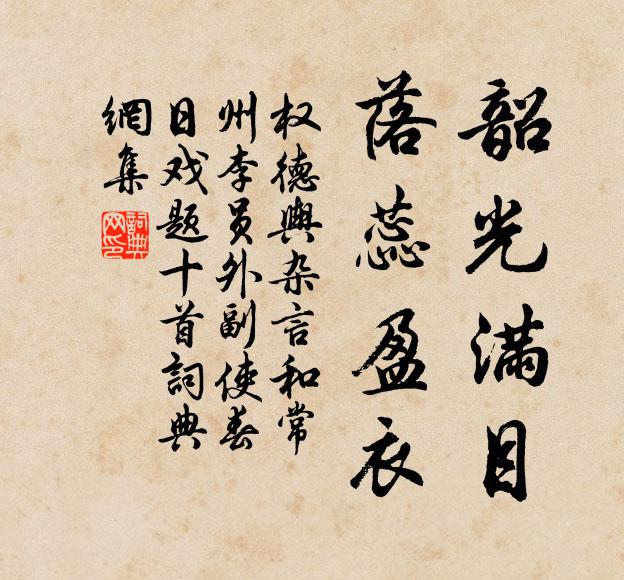 韶光满目
落蕊盈衣
权德舆杂言和常
州李员外副使春
日戏题十首词典
網集
詞典网印